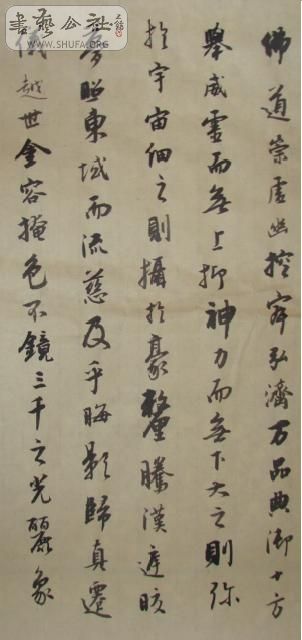 佛道崇虛幽控寂弘濟万品典御十方
舉威靈而無上抑神力而無下大之則弥
於宇宙細之則攝於豪釐騰漢庭皎
夢照東域而流慈及乎晦影歸真遷
儀越世金容掩色不鏡三千之光麗象
書藝公社
WWW.SHUFA.ORG